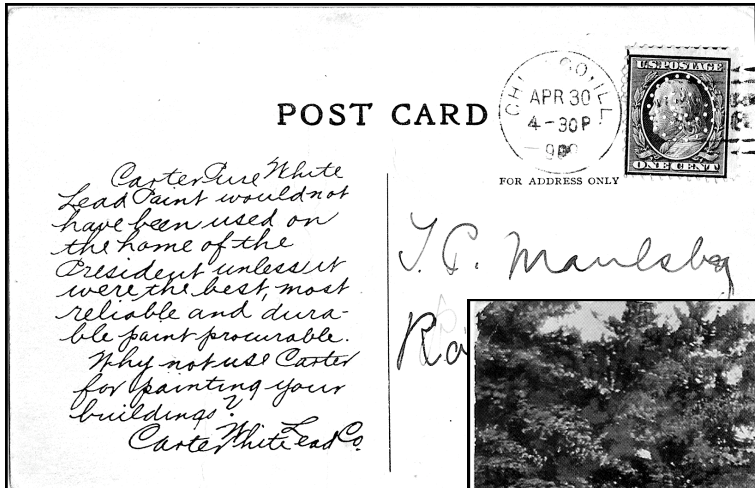 POST CARD
CHI GO, ILL.
APR 30
4-30P
U.S. POSTAGE
ONE CENT
FOR ADDRESS ONLY
Carter Pure White
Lead Paint would not
have been used on
the home of the
President unless it
were the best, most
reliable and dura-
ble paint procurable.
Why not use Carter
for painting your
buildings?
Carter White Lead Co.